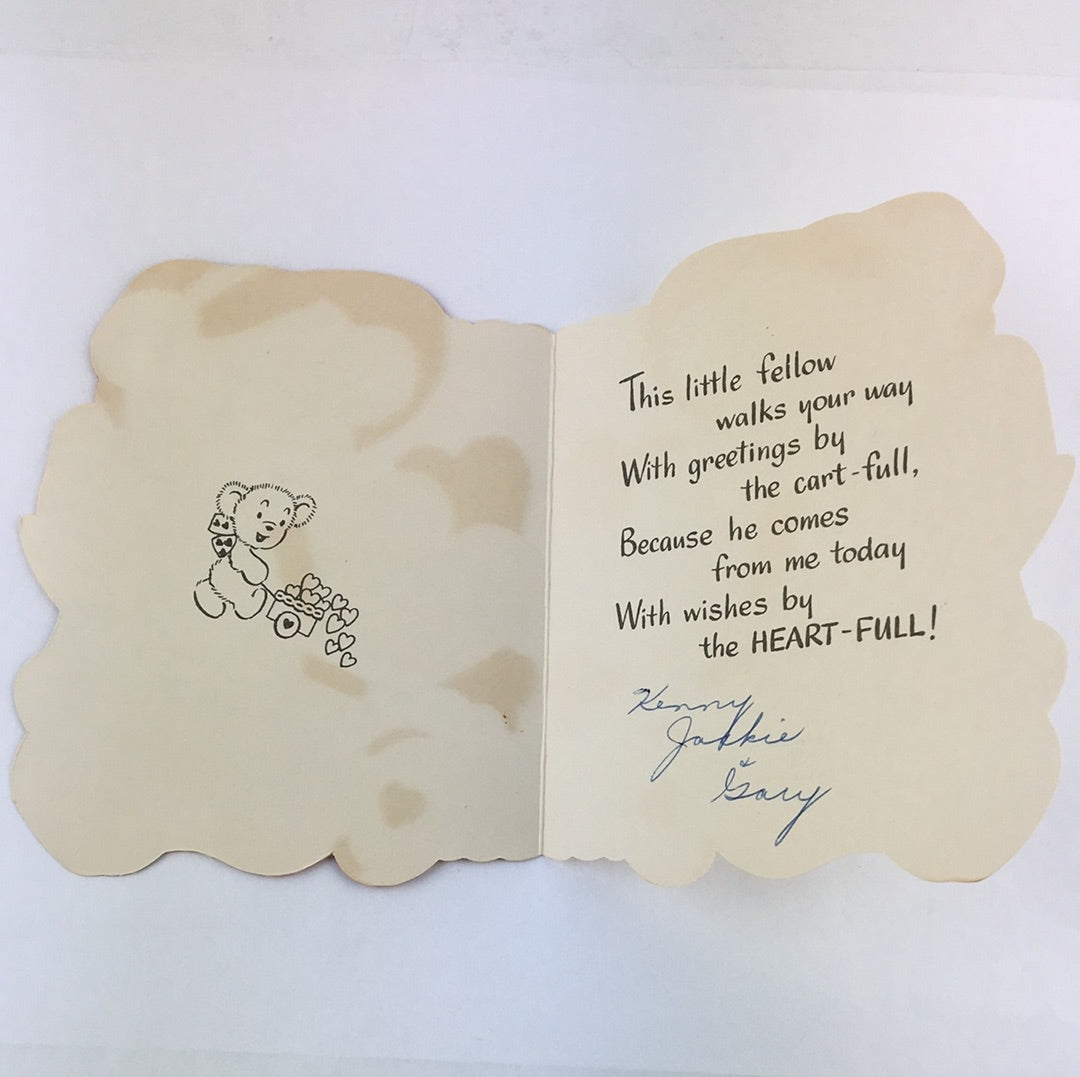 This little fellow
walks your way
With greetings by
the cart-full,
Because he comes
from me today
With wishes by
the HEART-FULL!
Kenny
Jackie
&
Gary